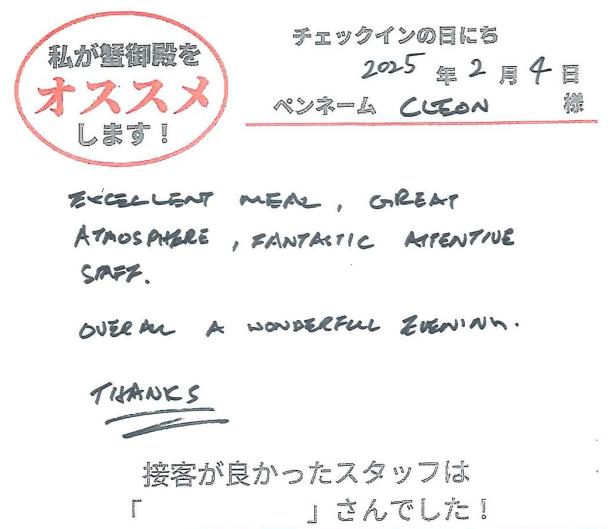 私が蟹御殿を
オススメ
します！
チェックインの日にち
2025 年 2 月 4 日
ペンネーム CLEON 様
EXCELLENT MEAL, GREAT
ATMOSPHERE, FANTASTIC ATTENTIVE
STAFF.
OVERALL A WONDERFULL EVENING.
THANKS
接客が良かったスタッフは
「 」さんでした！